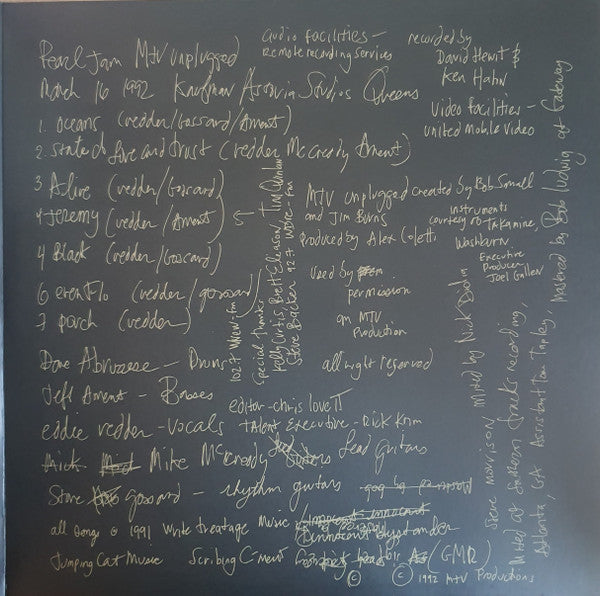 Pearl Jam MTV unplugged
March 16 1992 Kaufman Astoria Studios Queens
1. oceans (vedder/Gossard/Ament)
2. state of love and trust (vedder McCready Ament)
3 Alive (vedder/Gossard)
4 Jeremy (vedder/Ament) 5
4 Black (vedder/Gossard)
6 evenflo (vedder/gossard)
7 porch (vedder)
audio facilities –
Remote recording services
recorded by
David Hewit &
Ken Hahn
Video facilities –
united mobile video
MTV unplugged created by Bob Small
and Jim Burns
Produced by Alex Coletti
instruments
courtesy of Takamine,
Washburn
Executive
Producer
Joel Gallen
used by
permission
on MTV
Production
all right reserved
102.7 WNEW-FM
special thanks
Kelly Curtis, Brett Eliason, Tim Quinlan
Steve Backer 92.7 WDRE-FM
Dave Abruzzese – Drums
Jeff Ament – Basses
editor – chris lovett
eddie vedder – vocals Talent Executive – Rick Krim
Mick Mike McCready Lead guitars
Stone gossard – rhythm guitars
Mastered by Bob
all songs © 1991 write treatage Music / innocent bystander
Jumping Cat Music Scribing C-ment (GMR)
© © 1992 MTV Productions
Steve Morrison Mixed by Nick Didia
Mixed at Southern tracks recording,
Atlanta, GA Assistant Tom Tapley,
Mastered by Bob Ludwig at Gateway